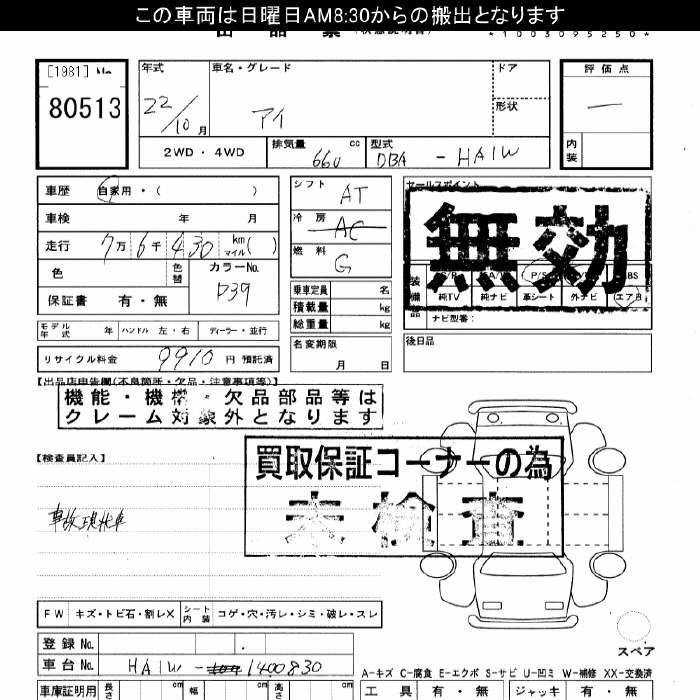 この車両は日曜日AM8:30からの搬出となります
*1003095250*
[1981] No
80513
年式
22/10月
車名・グレード
アイ
ドア
形状
評価点
—
内装
2WD・4WD
排気量
660 cc
型式
DBA - HA1W
車歴 自家用・( )
車検 年 月
走行 7万 6千 430 km マイル ( )
色
色替
カラーNo.
D39
保証書 有・無
シフト
AT
冷房
AC
燃料
G
セールスポイント
無効
P/S
ABS
装備品
純TV
純ナビ
革シート
外ナビ
エアB
ナビ型番:
乗車定員 名
積載量 kg
総重量 kg
モデル年式 年
ハンドル 左・右
ディーラー・並行
名変期限
月 日
後日品
リサイクル料金 9910 円 預託済
【出品店申告欄(不良箇所・欠品・注意事項等)】
機能・機構・欠品部品等は
クレーム対象外となります
【検査員記入】
買取保証コーナーの為
未検査
事故現状車
FW キズ・トビ石・割レX
シート内装
コゲ・穴・汚レ・シミ・破レ・スレ
スペア
登録No.
車台No. HA1W - 1400830
A-キズ C-腐食 E-エクボ S-サビ U-凹ミ W-補修 XX-交換済
車庫証明用
長さ cm
幅 cm
高さ cm
工具 有・無
ジャッキ 有・無